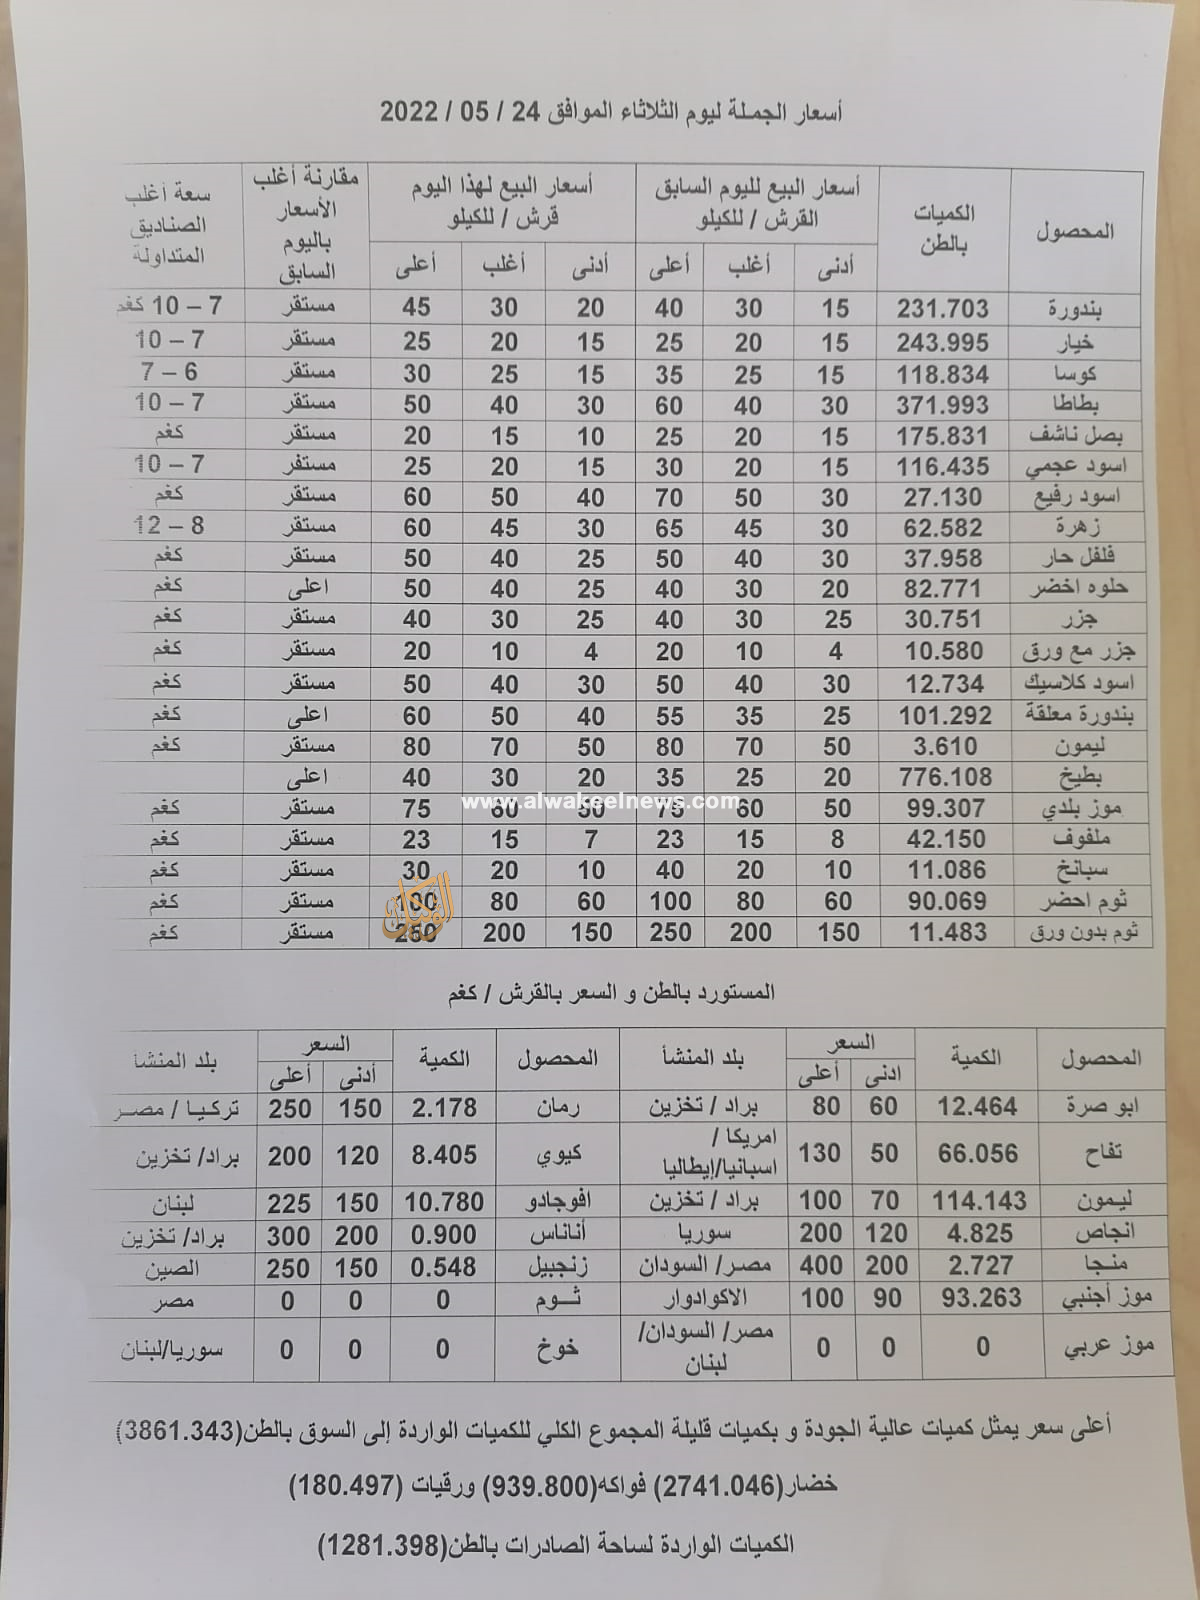 أسعار الجملة ليوم الثلاثاء الموافق 24 / 05 / 2022
المحصول | الكميات بالطن | أسعار البيع لليوم السابق القرش / للكيلو | أسعار البيع لهذا اليوم قرش / للكيلو | مقارنة أغلب الأسعار باليوم السابق | سعة أغلب الصناديق المتداولة
أدنى | أغلب | أعلى | أدنى | أغلب | أعلى
بندورة | 231.703 | 15 | 30 | 40 | 20 | 30 | 45 | مستقر | 7 – 10 كغم
خيار | 243.995 | 15 | 20 | 25 | 15 | 20 | 25 | مستقر | 7 – 10
كوسا | 118.834 | 15 | 25 | 35 | 15 | 25 | 30 | مستقر | 6 – 7
بطاطا | 371.993 | 30 | 40 | 60 | 30 | 40 | 50 | مستقر | 7 – 10
بصل ناشف | 175.831 | 15 | 20 | 25 | 10 | 15 | 20 | مستقر | كغم
اسود عجمي | 116.435 | 15 | 20 | 30 | 15 | 20 | 25 | مستقر | 7 – 10
اسود رفيع | 27.130 | 30 | 50 | 70 | 40 | 50 | 60 | مستقر | كغم
زهرة | 62.582 | 30 | 45 | 65 | 30 | 45 | 60 | مستقر | 8 – 12
فلفل حار | 37.958 | 30 | 40 | 50 | 25 | 40 | 50 | مستقر | كغم
حلوه اخضر | 82.771 | 20 | 30 | 40 | 25 | 40 | 50 | اعلى | كغم
جزر | 30.751 | 25 | 30 | 40 | 25 | 30 | 40 | مستقر | كغم
جزر مع ورق | 10.580 | 4 | 10 | 20 | 4 | 10 | 20 | مستقر | كغم
اسود كلاسيك | 12.734 | 30 | 40 | 50 | 30 | 40 | 50 | مستقر | كغم
بندورة معلقة | 101.292 | 25 | 35 | 55 | 40 | 50 | 60 | اعلى | كغم
ليمون | 3.610 | 50 | 70 | 80 | 50 | 70 | 80 | مستقر | كغم
بطيخ | 776.108 | 20 | 25 | 35 | 20 | 30 | 40 | اعلى
موز بلدي | 99.307 | 50 | 60 | 75 | 50 | 60 | 75 | مستقر | كغم
www.alwakeelnews.com
ملفوف | 42.150 | 8 | 15 | 23 | 7 | 15 | 23 | مستقر | كغم
سبانخ | 11.086 | 10 | 20 | 40 | 10 | 20 | 30 | مستقر | كغم
ثوم احضر | 90.069 | 60 | 80 | 100 | 60 | 80 | 100 | مستقر | كغم
الوكيل
ثوم بدون ورق | 11.483 | 150 | 200 | 250 | 150 | 200 | 250 | مستقر | كغم
المستورد بالطن و السعر بالقرش / كغم
المحصول | الكمية | السعر | بلد المنشأ | المحصول | الكمية | السعر | بلد المنشأ
ادنى | أعلى | أدنى | أعلى
ابو صرة | 12.464 | 60 | 80 | براد / تخزين | رمان | 2.178 | 150 | 250 | تركيا / مصر
تفاح | 66.056 | 50 | 130 | امريكا / اسبانيا/إيطاليا | كيوي | 8.405 | 120 | 200 | براد/ تخزين
ليمون | 114.143 | 70 | 100 | براد / تخزين | افوجادو | 10.780 | 150 | 225 | لبنان
انجاص | 4.825 | 120 | 200 | سوريا | أناناس | 0.900 | 200 | 300 | براد/ تخزين
منجا | 2.727 | 200 | 400 | مصر/ السودان | زنجبيل | 0.548 | 150 | 250 | الصين
موز أجنبي | 93.263 | 90 | 100 | الاكوادوار | ثـــوم | 0 | 0 | 0 | مصر
موز عربي | 0 | 0 | 0 | مصر/ السودان/ لبنان | خوخ | 0 | 0 | 0 | سوريا/لبنان
أعلى سعر يمثل كميات عالية الجودة و بكميات قليلة المجموع الكلي للكميات الواردة إلى السوق بالطن(3861.343)
خضار(2741.046) فواكه(939.800) ورقيات (180.497)
الكميات الواردة لساحة الصادرات بالطن(1281.398)